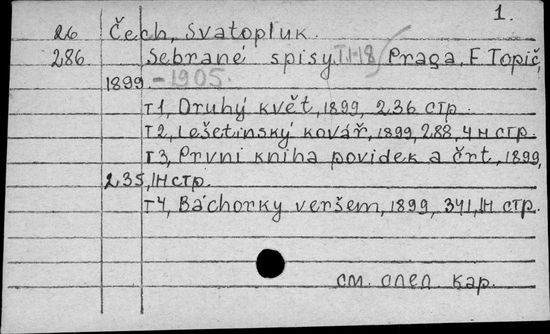 1.
26 Čech, Svatopluk.
286 Sebrané spisy T.1-18 Praga, F Topič,
1899 - 1905.
т1, Druhý květ, 1899, 236 стр.
т2, Lešetínský kovář, 1899, 288, 4н стр.
т3, První kniha povídek a črt, 1899,
235, 1н стр.
т4, Báchorky veršem, 1899, 341, 1н стр.
см. след кар.